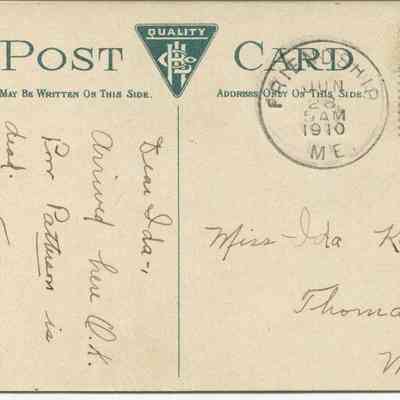 POST CARD
QUALITY
MAY BE WRITTEN ON THIS SIDE.
ADDRESS ONLY ON THIS SIDE.
FRIENDSHIP
JUN
28
5AM
1910
ME.
Dear Ida-,
arrived here O.K.
Poor Patterson is
dead.
Miss Ida K
Thoma